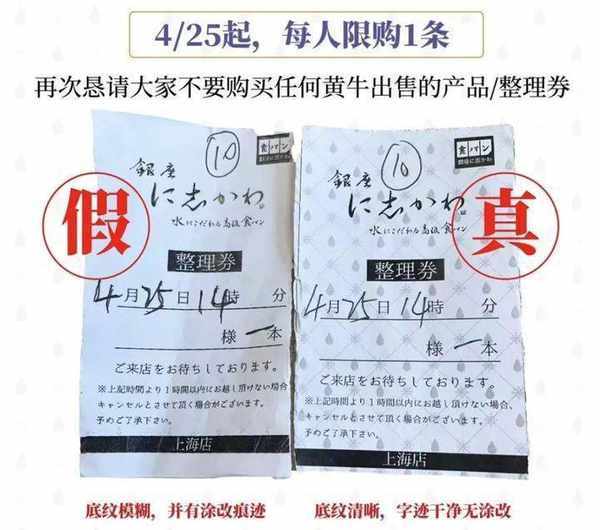 4/25起，每人限购1条
再次恳请大家不要购买任何黄牛出售的产品/整理券
假
10
食パン
銀座
に志かわ
水にこだわる高級食パン
整理券
4月25日14時 分
様 一本
ご来店をお待ちしております。
※上記時間より1時間以内にお越し頂けない場合
キャンセルとさせて頂く場合がございます。
予めご了承下さい。
上海店
底纹模糊，并有涂改痕迹
真
10
食パン
銀座
に志かわ
水にこだわる高級食パン
整理券
4月25日14時 分
様 一本
ご来店をお待ちしております。
※上記時間より1時間以内にお越し頂けない場合、
キャンセルとさせて頂く場合がございます。
予めご了承下さい。
上海店
底纹清晰，字迹干净无涂改